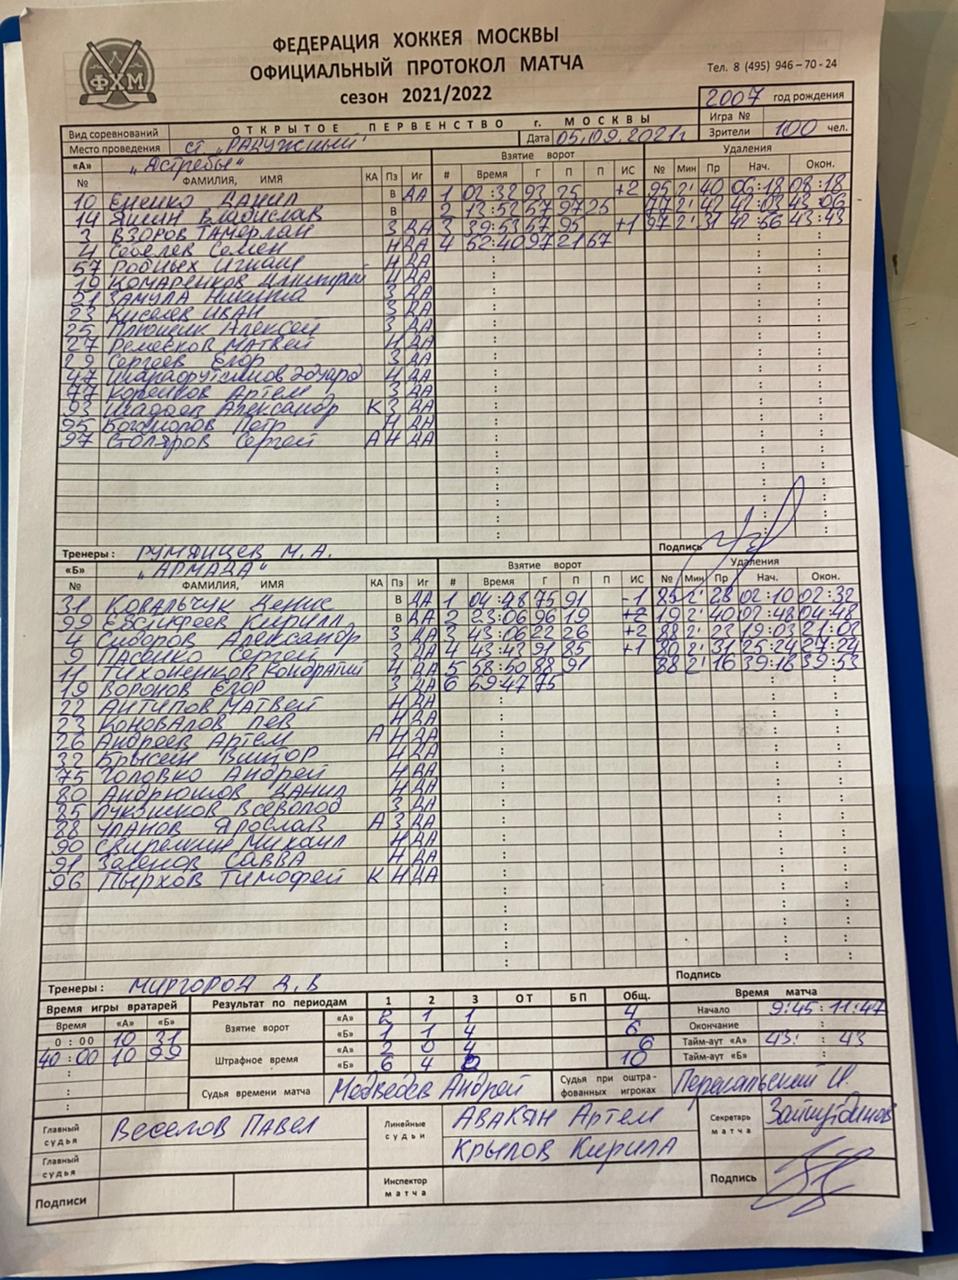 ФХМ
ФЕДЕРАЦИЯ ХОККЕЯ МОСКВЫ
ОФИЦИАЛЬНЫЙ ПРОТОКОЛ МАТЧА
сезон 2021/2022
Тел. 8 (495) 946-70-24
2007 год рождения
Вид соревнований ОТКРЫТОЕ ПЕРВЕНСТВО г. МОСКВЫ Игра №
Место проведения ст. "РАДУЖНЫЙ" Дата 05.09.2021г Зрители 100 чел.
«А» "Ястребы" Взятие ворот Удаления
№ ФАМИЛИЯ, ИМЯ КА Пз Иг # Время Г П П ИС № Мин Пр Нач. Окон.
10 Ененко Данил В ДА 1 02:32 93 25 +2 95 2' 40 06:18 08:18
14 Яшин Владислав В 2 13:52 57 97 25 77 2' 42:03 43:06
3 ВЗОРОВ ТАМЕРЛАН З ДА 3 39:53 57 95 +1 97 2' 31 42:56 43:43
4 Соболев Семен Н ДА 4 52:40 97 21 57
57 Родных Н ДА
19 КОМАРЕНКОВ Н ДА
21 ЗАМУЛА Никита З ДА
23 Киселев ИВАН З ДА
25 Плющик Алексей З ДА
27 Ремесков МАТВЕЙ Н ДА
29 Сергеев Егор З ДА
47 Н ДА
77 Артем З ДА
93 Александр К З ДА
95 Богомолов Петр Н ДА
97 Столяров Сергей А Н ДА
Тренеры : РУМЯНЦЕВ М.А. Подпись
«Б» "АРМАДА" Взятие ворот Удаления
№ ФАМИЛИЯ, ИМЯ КА Пз Иг # Время Г П П ИС № Мин Пр Нач. Окон.
31 Ковальчук Денис В ДА 1 04:28 75 91 -1 85 2' 28 02:10 02:32
99 Евстифеев Кирилл В ДА 2 23:06 96 19 +2 19 2' 40 02:48 04:48
4 Сидоров Александр З ДА 3 43:06 22 26 +2 88 2' 23 19:03 21:03
9 ПАСЕНКО Сергей З ДА 4 43:43 91 85 +1 80 2' 31 25:24 27:24
11 Тихоненков Кондратий Н ДА 5 58:50 88 91 88 2' 16 39:18 39:53
19 ВОРОНОВ ЕГОР З ДА 6 59:47 75
22 АНТИПОВ МАТВЕЙ Н ДА
23 КОНОВАЛОВ ЛЕВ Н ДА
26 Андреев Артем А Н ДА
32 Брысин Виктор Н ДА
75 Головко Андрей Н ДА
80 Андрюшов Данил Н ДА
85 Лукошков Всеволод З ДА
88 Уланов Ярослав А З ДА
90 Михаил Н ДА
91 САВВА Н ДА
96 Пырхов Тимофей К Н ДА
Тренеры : МИРГОРОД Д.В Подпись
Время игры вратарей Результат по периодам 1 2 3 ОТ БП Общ. Время матча
Время «А» «Б» Взятие ворот «А» 2 1 1 4 Начало 9:45 : 11:47
0 : 00 10 31 «Б» 1 1 4 6 Окончание :
40 : 00 10 99 Штрафное время «А» 2 0 4 6 Тайм-аут «А» 43 : 43
«Б» 6 4 0 10 Тайм-аут «Б»
Судья времени матча Медведев Андрей Судья при оштрафованных игроках И.
Главный судья Веселов Павел Линейные судьи АВАКЯН Артем Секретарь матча
Главный судья Крылов Кирилл
Подписи Инспектор матча Подпись